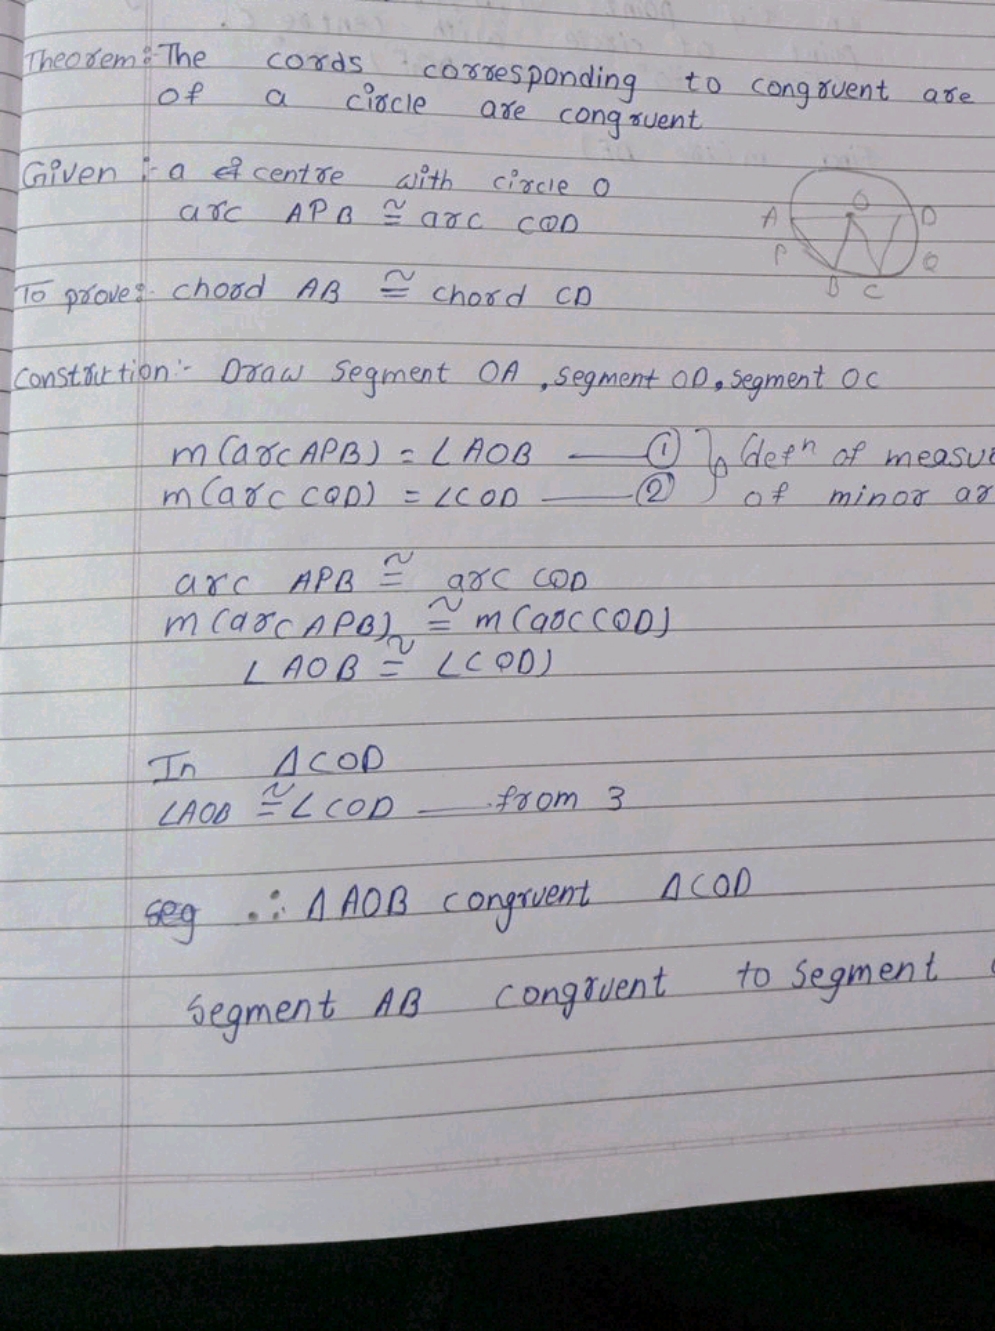 Theorem: The cords corresponding to congruent are
of a circle are congruent
Given :- a centre with circle O
arc APB ≅ arc CQD
To prove:- chord AB ≅ chord CD
construction:- Draw segment OA, segment OD, segment OC
m(arc APB) = ∠AOB —— ①
m(arc CQD) = ∠COD —— ②
(defn of measu
of minor ar
arc APB ≅ arc CQD
m(arc APB) ≅ m(arc CQD)
∠AOB ≅ ∠COD)
In ΔCOD
∠AOB ≅ ∠COD —— from 3
seg ∴ ΔAOB congruent ΔCOD
segment AB congruent to segment
O
A
D
P
Q
B C